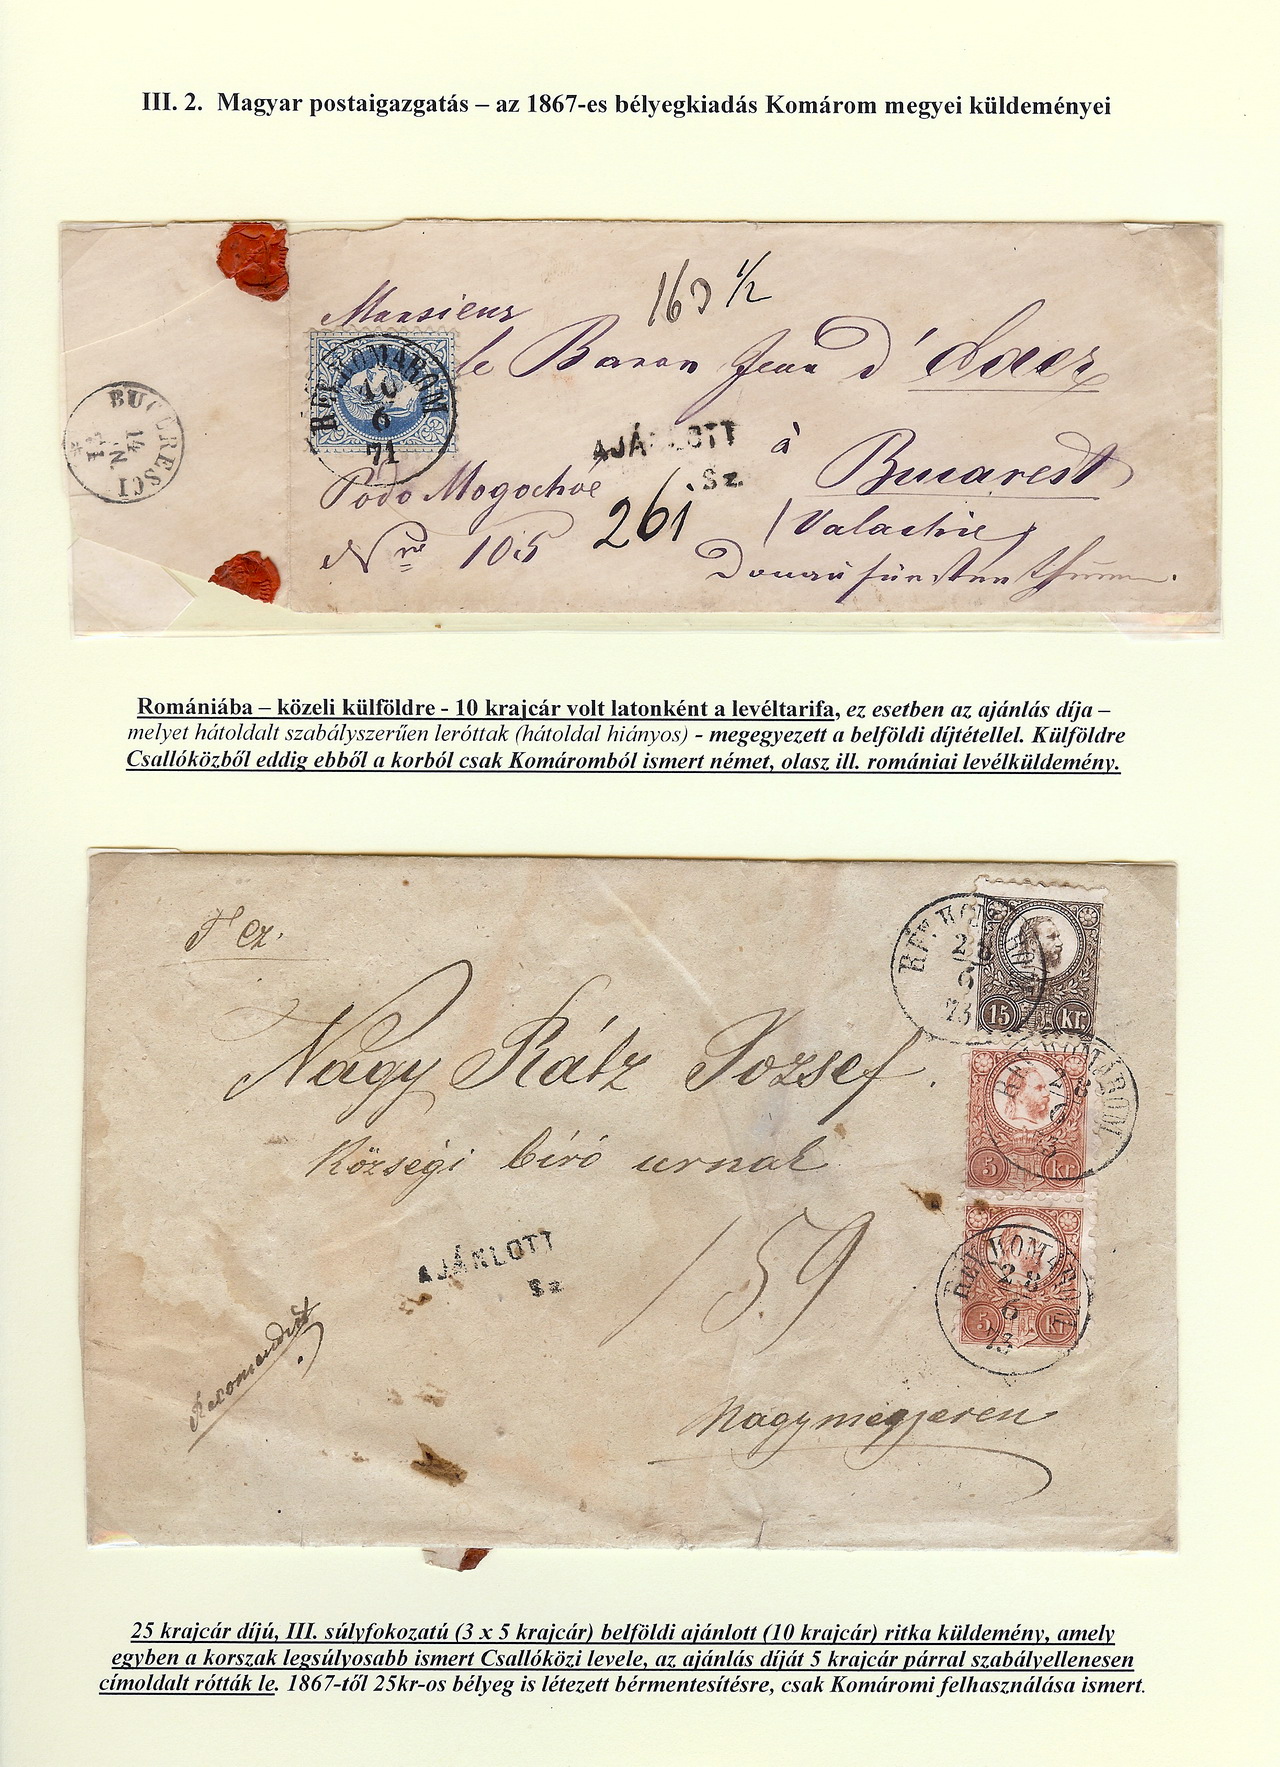 III. 2. Magyar postaigazgatás – az 1867-es bélyegkiadás Komárom megyei küldeményei
160 1/2
Monsieur
le Baron Jean d'
RÉV KOMÁROM
10
6
71
BUCURESCI
14
AJÁNLOTT
Sz.
à
Bucarest
Podo Mogochoé
261
(Valachie)
Nro 105
Donaufürstenthum
Romániába – közeli külföldre - 10 krajcár volt latonként a levéltarifa, ez esetben az ajánlás díja –
melyet hátoldalt szabályszerűen leróttak (hátoldal hiányos) - megegyezett a belföldi díjtétellel. Külföldre
Csallóközből eddig ebből a korból csak Komáromból ismert német, olasz ill. romániai levélküldemény.
RÉV KOMÁROM
28
6
73
15 kr
Nagy Rátz Jozsef.
RÉV KOMÁROM
28
6
73
5 kr
Községi bíró urnak
AJÁNLOTT
Sz
159
RÉV KOMÁROM
28
6
73
5 kr
Recomendirt
Nagymegyeren
25 krajcár díjú, III. súlyfokozatú (3 x 5 krajcár) belföldi ajánlott (10 krajcár) ritka küldemény, amely
egyben a korszak legsúlyosabb ismert Csallóközi levele, az ajánlás díját 5 krajcár párral szabályellenesen
címoldalt rótták le. 1867-től 25kr-os bélyeg is létezett bérmentesítésre, csak Komáromi felhasználása ismert.